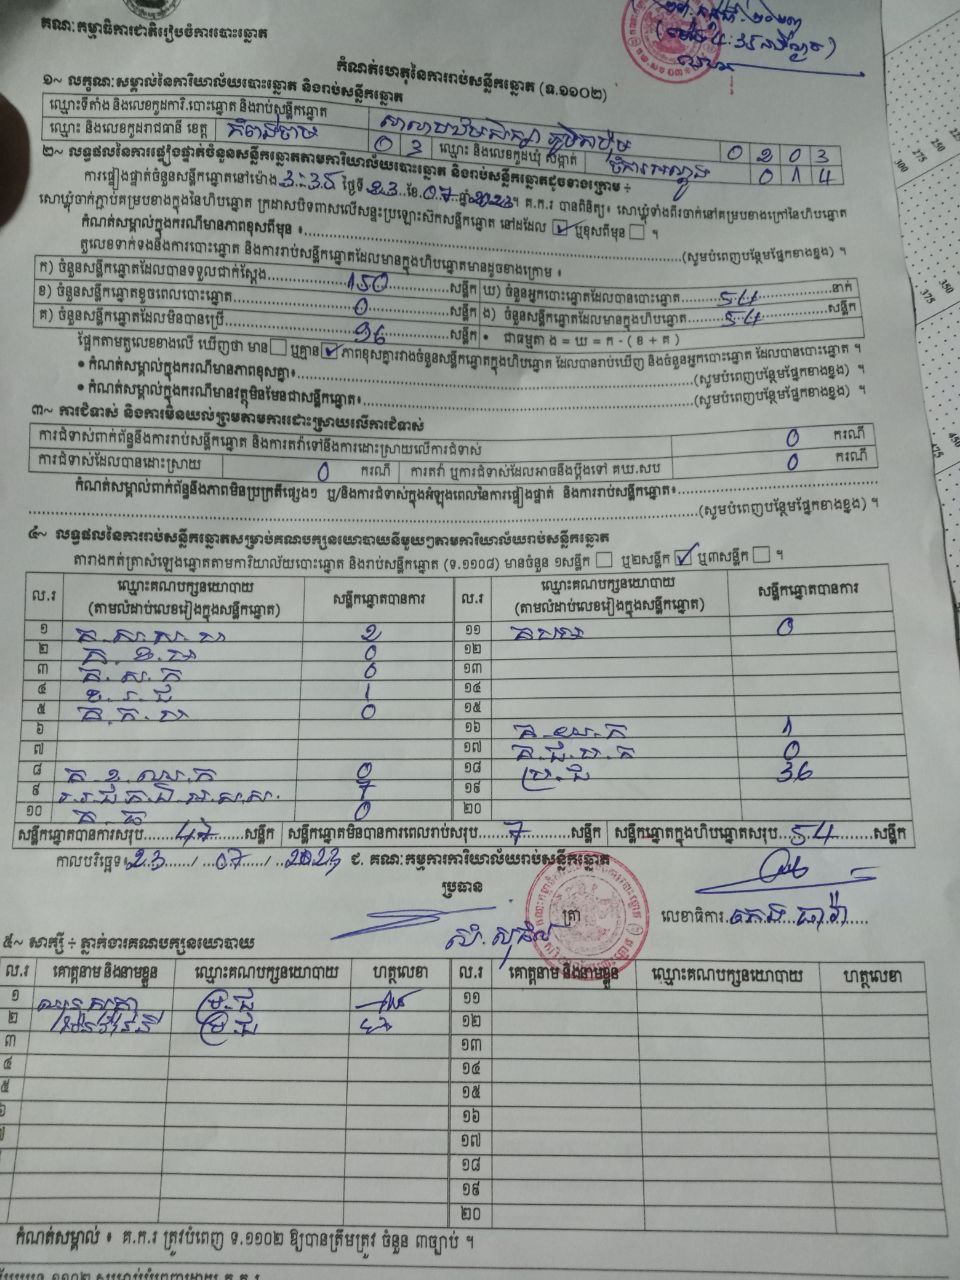 គណៈកម្មាធិការជាតិរៀបចំការបោះឆ្នោត
កំណត់ហេតុនៃការរាប់សន្លឹកឆ្នោត (ទ.១១០២)
១~ លក្ខណៈសម្គាល់នៃការិយាល័យបោះឆ្នោត និងរាប់សន្លឹកឆ្នោត
ឈ្មោះទីតាំង និងលេខកូដការិ.បោះឆ្នោត និងរាប់សន្លឹកឆ្នោត 0 2 0 3
ឈ្មោះ និងលេខកូដរាជធានី ខេត្ត កំពង់ចាម 0 3 ឈ្មោះ និងលេខកូដឃុំ សង្កាត់ 0 1 4
២~ លទ្ធផលនៃការផ្ទៀងផ្ទាត់ចំនួនសន្លឹកឆ្នោតតាមការិយាល័យបោះឆ្នោត និងរាប់សន្លឹកឆ្នោតដូចខាងក្រោម ÷
ការផ្ទៀងផ្ទាត់ចំនួនសន្លឹកឆ្នោតនៅម៉ោង 3:35 ថ្ងៃទី 23 ខែ 07 ឆ្នាំ 2023 ។ គ.ក.រ បានពិនិត្យ៖ សោឃ្មុំទាំងពីរចាក់នៅគម្របខាងក្រៅនៃហិបឆ្នោត
សោឃ្មុំចាក់ភ្ជាប់គម្របខាងក្នុងនៃហិបឆ្នោត ក្រដាសបិទពាសលើសន្ទះប្រឡោះស៊កសន្លឹកឆ្នោត នៅដដែល ☑ ឬខុសពីមុន ☐ ។
កំណត់សម្គាល់ក្នុងករណីមានភាពខុសពីមុន ៖ (សូមបំពេញបន្ថែមផ្នែកខាងខ្នង) ។
តួលេខទាក់ទងនឹងការបោះឆ្នោត និងការរាប់សន្លឹកឆ្នោតដែលមានក្នុងហិបឆ្នោតមានដូចខាងក្រោម ៖
ក) ចំនួនសន្លឹកឆ្នោតដែលបានទទួលជាក់ស្តែង 150 សន្លឹក ឃ) ចំនួនអ្នកបោះឆ្នោតដែលបានបោះឆ្នោត 54 នាក់
ខ) ចំនួនសន្លឹកឆ្នោតខូចពេលបោះឆ្នោត 0 សន្លឹក ង) ចំនួនសន្លឹកឆ្នោតដែលមានក្នុងហិបឆ្នោត 54 សន្លឹក
គ) ចំនួនសន្លឹកឆ្នោតដែលមិនបានប្រើ 96 សន្លឹក • ជាធម្មតា ង = ឃ = ក - ( ខ + គ )
ផ្អែកតាមតួលេខខាងលើ ឃើញថា មាន ☐ ឬគ្មាន ☑ ភាពខុសគ្នារវាងចំនួនសន្លឹកឆ្នោតក្នុងហិបឆ្នោត ដែលបានរាប់ឃើញ និងចំនួនអ្នកបោះឆ្នោត ដែលបានបោះឆ្នោត ។
• កំណត់សម្គាល់ក្នុងករណីមានភាពខុសគ្នា៖ (សូមបំពេញបន្ថែមផ្នែកខាងខ្នង) ។
• កំណត់សម្គាល់ក្នុងករណីមានវត្ថុមិនមែនជាសន្លឹកឆ្នោត៖ (សូមបំពេញបន្ថែមផ្នែកខាងខ្នង) ។
៣~ ការជំទាស់ និងការមិនយល់ព្រមតាមការដោះស្រាយលើការជំទាស់
ការជំទាស់ពាក់ព័ន្ធនឹងការរាប់សន្លឹកឆ្នោត និងការតវ៉ាទៅនឹងការដោះស្រាយលើការជំទាស់ 0 ករណី
ការជំទាស់ដែលបានដោះស្រាយ 0 ករណី ការតវ៉ា ឬការជំទាស់ដែលអាចនឹងប្ដឹងទៅ គឃ.សប 0 ករណី
កំណត់សម្គាល់ពាក់ព័ន្ធនឹងភាពមិនប្រក្រតីផ្សេងៗ ឬ/និងការជំទាស់ក្នុងអំឡុងពេលនៃការផ្ទៀងផ្ទាត់ និងការរាប់សន្លឹកឆ្នោត៖
(សូមបំពេញបន្ថែមផ្នែកខាងខ្នង) ។
៤~ លទ្ធផលនៃការរាប់សន្លឹកឆ្នោតសម្រាប់គណបក្សនយោបាយនីមួយៗតាមការិយាល័យរាប់សន្លឹកឆ្នោត
តារាងកត់ត្រាសំឡេងឆ្នោតតាមការិយាល័យបោះឆ្នោត និងរាប់សន្លឹកឆ្នោត (ទ.១១០៨) មានចំនួន ១សន្លឹក ☐ ឬ២សន្លឹក ☑ ឬ៣សន្លឹក ☐ ។
ល.រ ឈ្មោះគណបក្សនយោបាយ សន្លឹកឆ្នោតបានការ ល.រ ឈ្មោះគណបក្សនយោបាយ សន្លឹកឆ្នោតបានការ
(តាមលំដាប់លេខរៀងក្នុងសន្លឹកឆ្នោត) (តាមលំដាប់លេខរៀងក្នុងសន្លឹកឆ្នោត)
១ 2 ១១ 0
២ 0 ១២
៣ 0 ១៣
៤ 1 ១៤
៥ 0 ១៥
៦ ១៦ 1
៧ ១៧ 0
៨ 0 ១៨ ប្រ.ជ 36
៩ 7 ១៩
១០ 0 ២០
សន្លឹកឆ្នោតបានការសរុប 47 សន្លឹក សន្លឹកឆ្នោតមិនបានការពេលរាប់សរុប 7 សន្លឹក សន្លឹកឆ្នោតក្នុងហិបឆ្នោតសរុប 54 សន្លឹក
កាលបរិច្ឆេទ៖ 23 / 07 / 2023 ជ. គណៈកម្មការការិយាល័យរាប់សន្លឹកឆ្នោត
ប្រធាន
ត្រា លេខាធិការ
៥~ សាក្សី ÷ ភ្នាក់ងារគណបក្សនយោបាយ
ល.រ គោត្តនាម និងនាមខ្លួន ឈ្មោះគណបក្សនយោបាយ ហត្ថលេខា ល.រ គោត្តនាម និងនាមខ្លួន ឈ្មោះគណបក្សនយោបាយ ហត្ថលេខា
១ ប្រ.ជ ១១
២ ប្រ.ជ ១២
៣ ១៣
៤ ១៤
៥ ១៥
៦ ១៦
៧ ១៧
១៨
១៩
២០
កំណត់សម្គាល់ ៖ គ.ក.រ ត្រូវបំពេញ ទ.១១០២ ឱ្យបានត្រឹមត្រូវ ចំនួន ៣ច្បាប់ ។